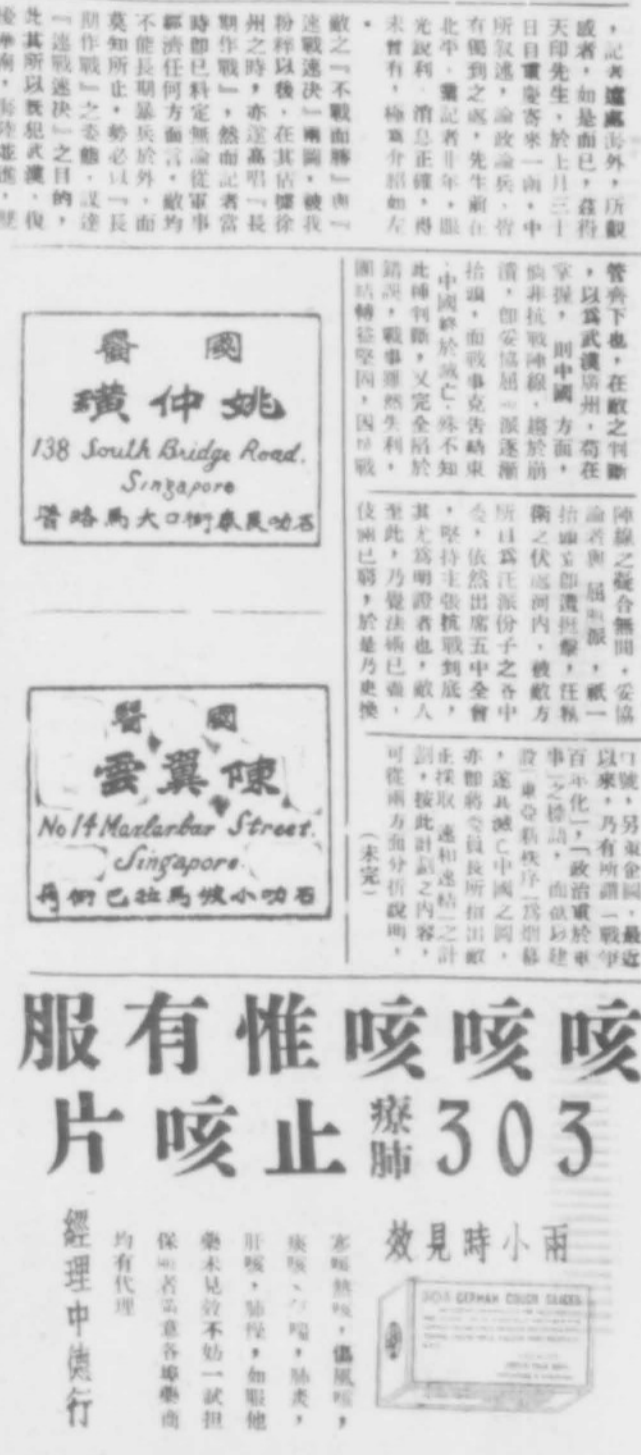 ，記者遠處海外，所觀
或者，如是而已，茲得
天印先生，於上月三十
日自重慶寄來一函，中
所叙述，論政論兵，皆
有獨到之處，先生前在
北平，業記者廿年，眼
光銳利，消息正確，得
未曾有，極爲介紹如左
。
敵之『不戰而勝』與『
速戰速决』兩圖，被我
粉碎以後，在其佔據徐
州之時，亦遂高唱『長
期作戰』，然而記者當
時即已料定無論從軍事
經濟任何方面言，敵均
不能長期暴兵於外，而
莫知所止，勢必以『長
期作戰』之姿態，謀達
『速戰速决』之目的，
此其所以旣犯武漢，復
侵華南，海陸並進，雙
管齊下也，在敵之判斷
，以爲武漢廣州，苟在
掌握，則中國方面，
倘非抗戰陣線，趨於崩
潰，即妥協屈服派逐漸
抬頭，而戰事克告結束
中國終於滅亡，殊不知
此種判斷，又完全陷於
錯誤，戰事雖然失利，
團結轉益堅固，因抗戰
陣線之凝合無間，妥協
論者與屈服派，祇一
抬頭立即遭抨擊，汪精
衛之伏處河内，被敵方
所目爲汪派份子之各中
委，依然出席五中全會
，堅持主張抗戰到底，
其尤爲明證者也，敵人
至此，乃覺法術已盡，
伎倆已窮，於是乃更換
口號，另束企圖，最近
以來，乃有所謂「戰爭
百年化」，「政治重於軍
事」之標語，而欲以建
設「東亞新秩序」爲烟幕
，遂其滅亡中國之圖，
亦即蔣委員長所指出敵
正採取「速和速結」之計
劃，按此計劃之内容，
可從兩方面分析說明，
（未完）
國醫
姚仲璜
138 South Bridge Road.
Singapore
石叻民衆街口大馬路普
國醫
陳翼雲
No 14 Marlarbar Street.
Singapore.
石叻小坡馬拉巴街
咳咳咳惟有服
303療肺止咳片
兩小時見效
303 GERMAN COUGH SLICES
寒咳熱咳，傷風咳，
痰咳，肺炎，
肝咳，肺癆，如服他
藥未見效不妨一試担
保各埠藥商
均有代理
經理中德行